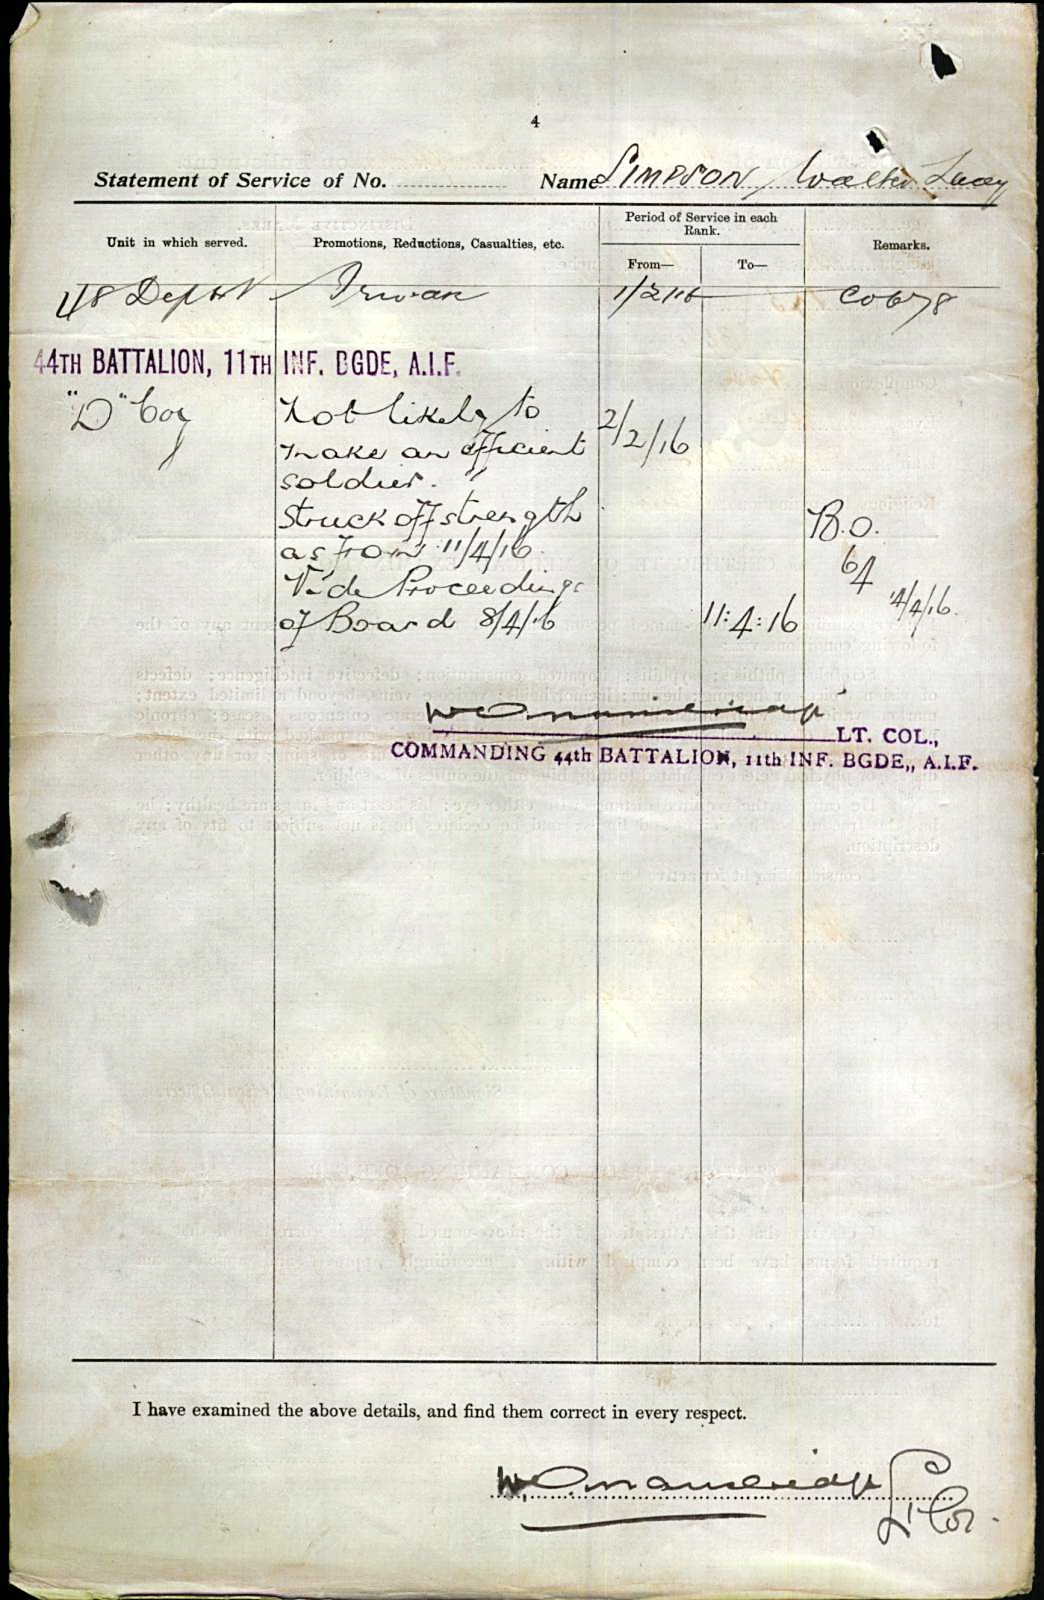 4
Statement of Service of No. .................... Name SIMPSON, Walter Lacey
Unit in which served.
Promotions, Reductions, Casualties, etc.
Period of Service in each
Rank.
From—
To—
Remarks.
48 Depot
1/2/16
CO 678
44TH BATTALION, 11TH INF. BGDE, A.I.F.
"D" Coy
Not likely to
make an efficient
soldier.
Struck off strength
as from 11/4/16
Vide Proceedings
of Board 8/4/16
2/2/16
11:4:16
B.O.
64
14/4/16.
LT. COL.,
COMMANDING 44th BATTALION, 11th INF. BGDE,, A.I.F.
I have examined the above details, and find them correct in every respect.
Lt Col.